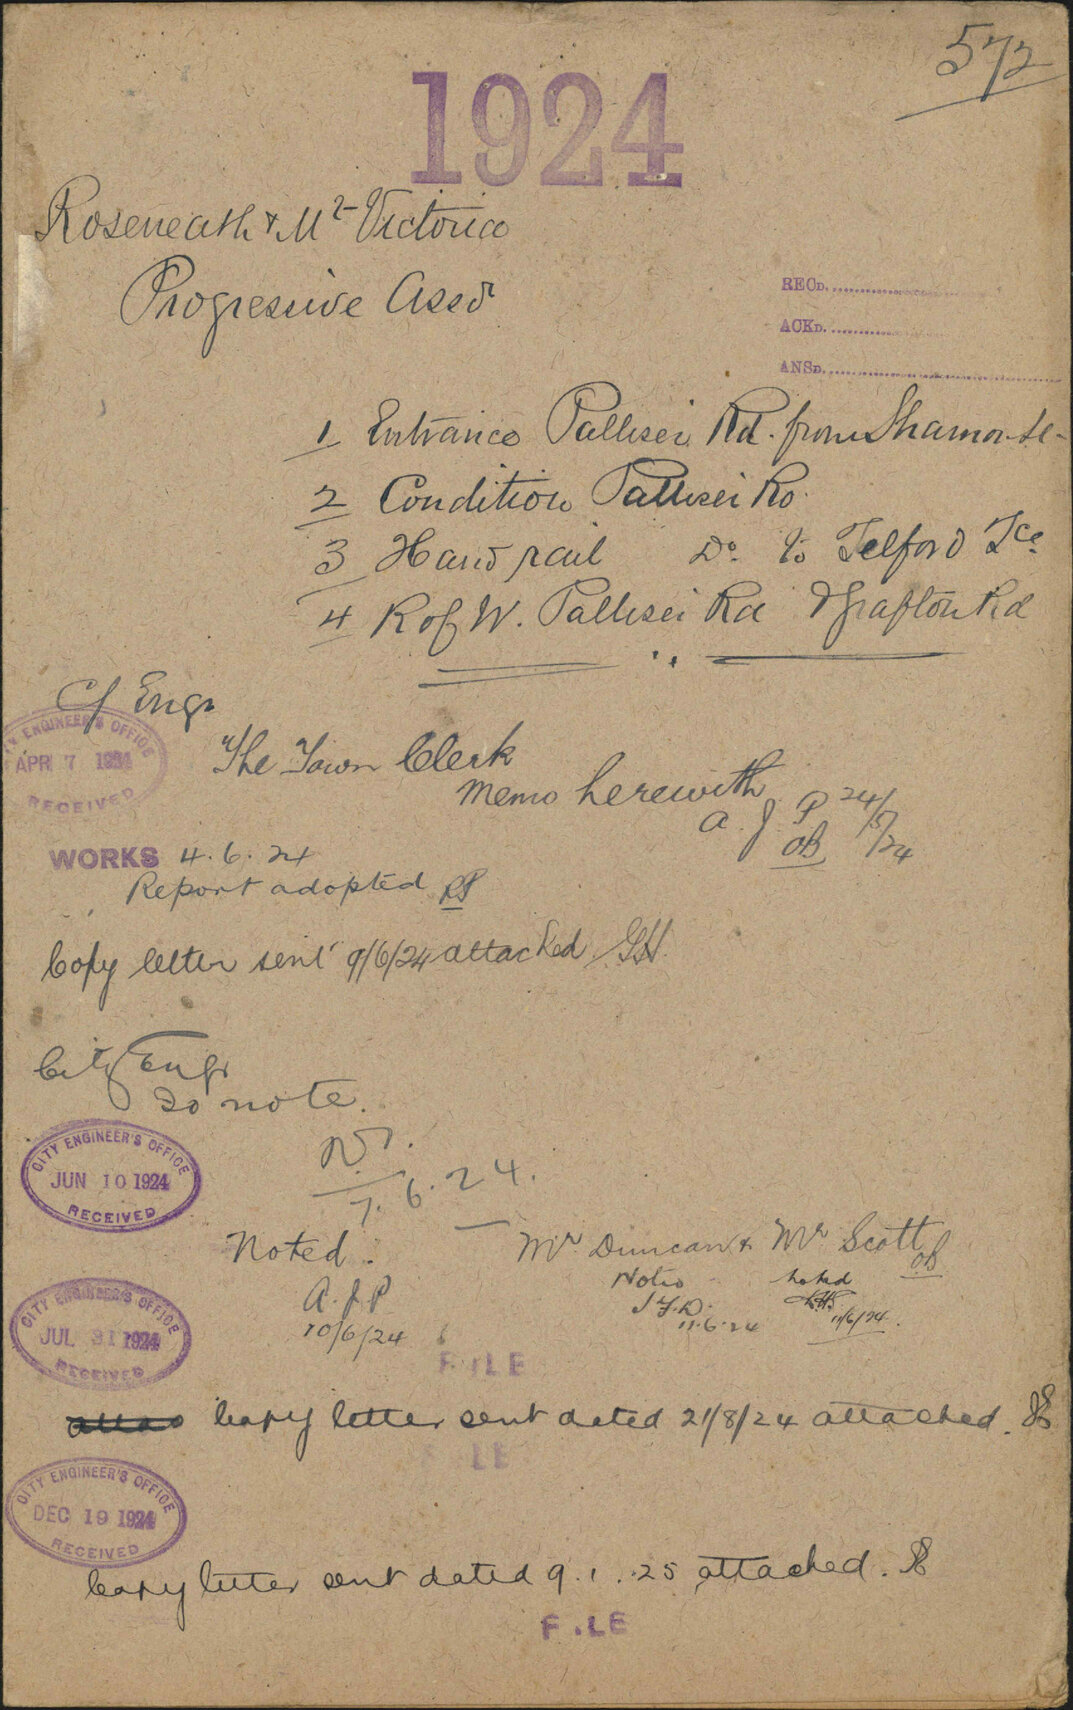 572
1924
Roseneath & Mt Victoria
Progressive Assn
RECD.
ACKD.
ANSD.
1 Entrance Palliser Rd. from
2 Condition Palliser Rd.
3 Hand rail Do. to Telford Tce
4 R of W. Palliser Rd & Grafton Rd
Cy Engr
CITY ENGINEER'S OFFICE
APR 7 1924
RECEIVED
The Town Clerk
Memo herewith
A. J. P 24/5/24
OB
WORKS 4.6.24
Report adopted
Copy letter sent 9/6/24 attached GH.
City Engr
To note.
CITY ENGINEER'S OFFICE
JUN 10 1924
RECEIVED
7.6.24.
Noted.
A.J.P
10/6/24
Mr Duncan & Mr Scott OB
Noted
J.F.D.
11.6.24
Noted
11/6/24.
CITY ENGINEER'S OFFICE
JUL 31 1924
RECEIVED
FILE
Copy letter sent dated 21/8/24 attached.
CITY ENGINEER'S OFFICE
DEC 19 1924
RECEIVED
Copy letter sent dated 9.1.25 attached.
F.LE